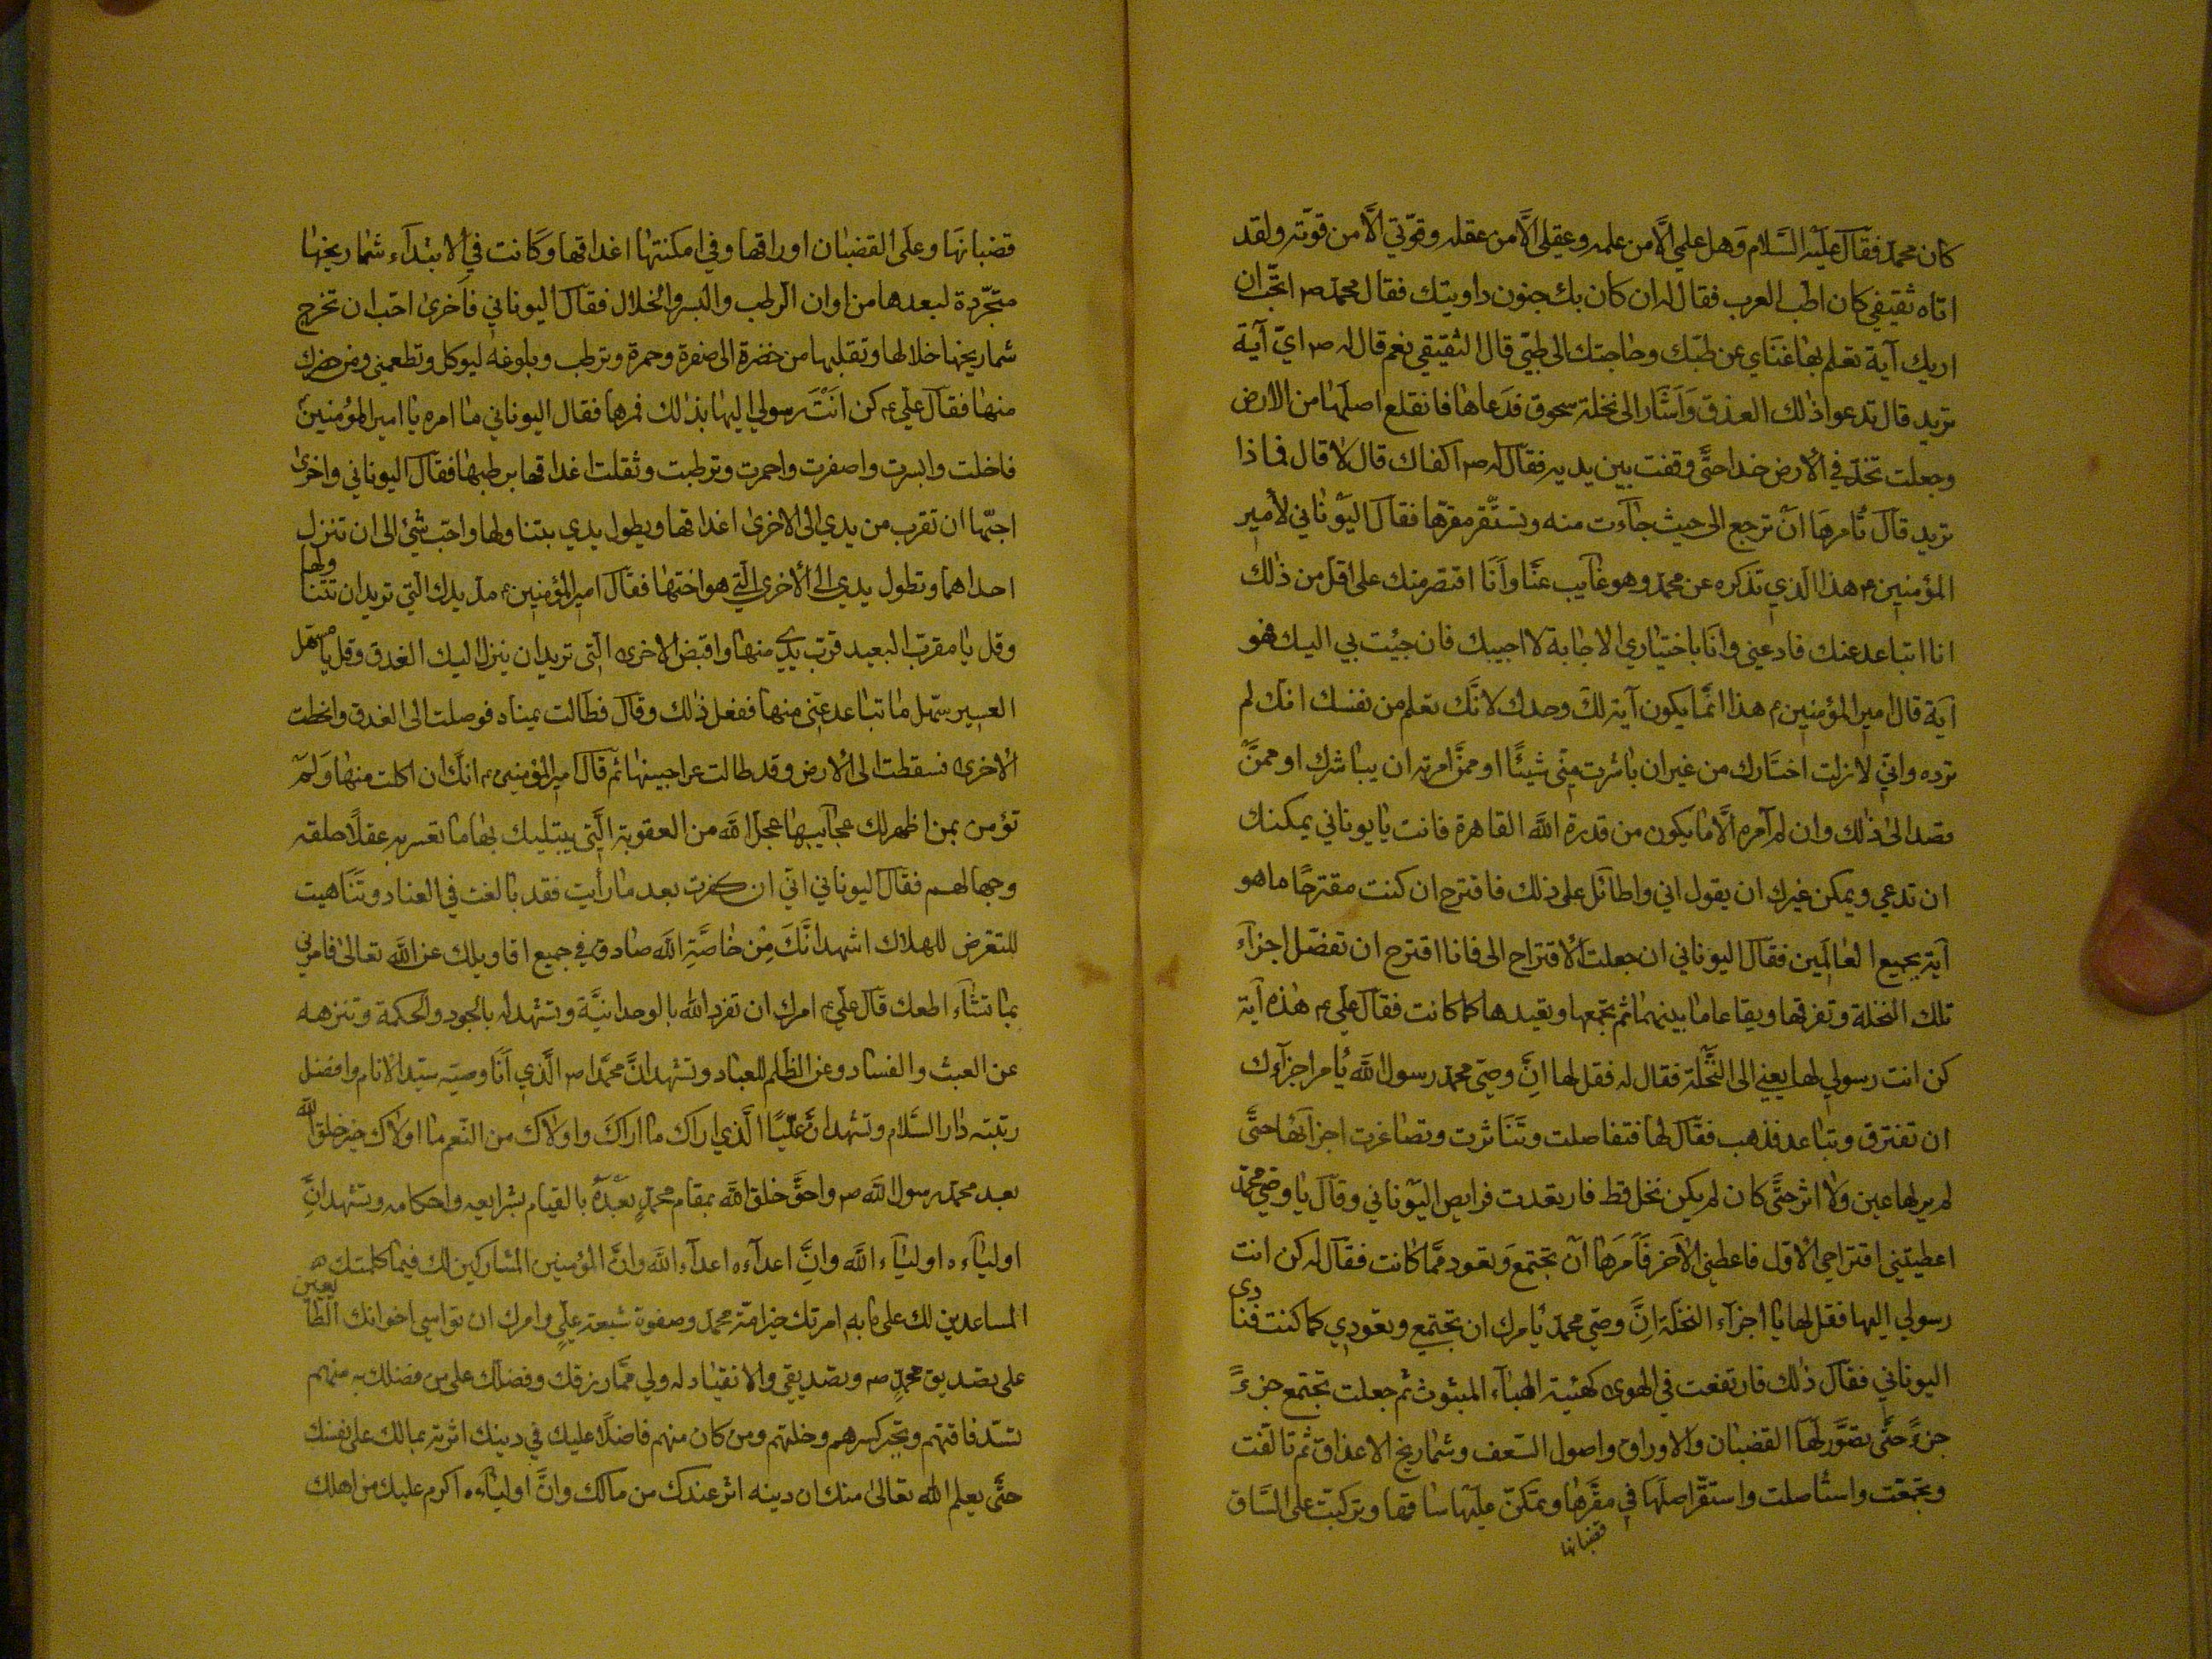 كان محمد فقال عليه السلام وهل علمي الا من علمه وعقلي الا من عقله وقوتي الا من قوته ولقد
اتاه ثقيفي كان اطب العرب فقال له ان كان بك جنون داويتك فقال محمد ص اتحب ان
اريك آية تعلم بها غناي عن طبك وحاجتك الى طبي قال الثقيفي نعم قال له ص اي آية
تريد قال تدعوا ذلك العذق واشار الى نخلة سحوق فدعاها فانقلع اصلها من الارض
وجعلت تخد في الارض خدا حتى وقفت بين يديه فقال له ص اكفاك قال لا قال فماذا
تريد قال تامرها ان ترجع الى حيث جاءت منه وتستقر مقرها فقال اليوناني لامير
المؤمنين ع هذا الذي تذكره عن محمد وهو غايب عنا وانا اقتصر منك على اقل من ذلك
انا اتباعد عنك فادعني وانا باختياري الاجابة لا اجيبك فان جئت بي اليك فهو
آية قال امير المؤمنين ع هذا انما يكون آية لك وحدك لانك تعلم من نفسك انك لم
ترده واني لا زلت اختارك من غير ان باشرت مني شيئا او ممن امرته ان يباشرك او ممن
قصد الى ذلك وان لم آمره الا ما يكون من قدرة الله القاهرة فانت يا يوناني يمكنك
ان تدعي ويمكن غيرك ان يقول اني واطائل على ذلك فاقترح ان كنت مقترحا ما هو
آية بجميع العالمين فقال اليوناني ان جعلت الاقتراح الى فانا اقترح ان تفصل اجزاء
تلك النخلة وتفرقها ويقاعا ما بينهما ثم تجمعها وتعيدها كما كانت فقال علي ع هذه آية
كن انت رسولي لها يعني الى النخلة فقال له فقل لها ان وصي محمد رسول الله يأمر اجزاءك
ان تفترق وتباعد فذهب فقال لها فتفاصلت وتناثرت وتصاغرت اجزائها حتى
لم ير لها عين ولا اثر حتى كان لم يكن نخل قط فارتعدت فرايص اليوناني وقال يا وصي محمد
اعطيتني اقتراحي الاول فاعطني الآخر فامرها ان تجتمع وتعود مما كانت فقال له كن انت
رسولي اليها فقل لها يا اجزاء النخلة ان وصي محمد يأمرك ان تجتمعي وتعودي كما كنت فنادى
اليوناني فقال ذلك فارتفعت في الهوى كهيئة الهباء المبثوث ثم جعلت تجتمع جزءً
جزءً حتى تصور لها القضبان والاوراق واصول السعف وشماريخ الاعذاق ثم تالفت
وتجمعت واستأصلت واستقر اصلها في مقرها وتمكن عليها ساقها وتركبت على الساق
قضبانها
قضبانها وعلى القضبان اوراقها وفي امكنتها اغداقها وكانت في الابتداء شماريخها
متجردة لبعدها من اوان الرطب والبسر والخلال فقال اليوناني فآخرى احب ان تخرج
شماريخها خلالها وتقلبها من خضرة الى صفرة وحمرة وترطب وبلوغه ليوكل وتطعمني ومن حضرك
منها فقال علي ع كن انت رسولي اليها بذلك فمرها فقال اليوناني ما امره يا امير المؤمنين
فاخلت وابسرت واصفرت واحمرت وترطبت وثقلت اغداقها برطبها فقال اليوناني واخرى
احبها ان تقرب من يدي الى الاخرى اغداقها ويطول يدي بتناولها واحب شئ الى ان تنزل
احداهما وتطول يدي الى الاخرى التي هو اختها فقال امير المؤمنين ع مد يدك التي تريد ان تتناولها
وقل يا مقرب البعيد قرب يدي منها واقبض الاخرى التي تريد ان ينزل اليك الغدق وقل يا مسهل
العسير سهل ما تباعد عني منها ففعل ذلك وقال فطالت يمناه فوصلت الى الغدق وانحطت
الاخرى فسقطت الى الارض وقد طالت عراجينها ثم قال امير المؤمنين ع انك ان اكلت منها ولم
تؤمن بمن اظهر لك عجايبها عجل الله من العقوبة التي يبتليك بها ما تعسر به عقلا خلقه
وجهالهم فقال اليوناني اني ان كفرت بعد ما رأيت فقد بالغت في العناد وتناهيت
للتعرض للهلاك اشهد انك من خاصة الله صادق في جميع اقاويلك عن الله تعالى فامرني
بما تشاء اطعك قال علي ع امرك ان تفرد الله بالوحدانية وتشهد له بالجود والحكمة وتنزهه
عن العبث والفساد وعن الظلم للعباد وتشهد ان محمدا ص الذي انا وصيه سيد الانام وافضل
رتبته دار السلام وتشهد ان عليا الذي اراك ما اراك واولاك من النعم ما اولاك خير خلق الله
بعد محمد رسول الله ص واحق خلق الله بمقام محمد بعده بالقيام بشرايعه واحكامه وتشهد ان
اولياءه اولياء الله وان اعداءه اعداء الله وان المؤمنين المشاركين لك فيما كلمتك هـ
المساعدين لك على ما به امرتك خير امة محمد وصفوة شيعة علي وامرك ان تواسي اخوانك الطايعين
على تصديق محمد ص وتصديقي والانقياد له ولي مما رزقك وفضلك على من فضلك به منهم
تسد فاقتهم وتجبر كسرهم وخلتهم ومن كان منهم فاضلا عليك في دينك اثرته بمالك على نفسك
حتى يعلم الله تعالى منك ان دينه اثر عندك من مالك وان اولياءه اكرم عليك من اهلك